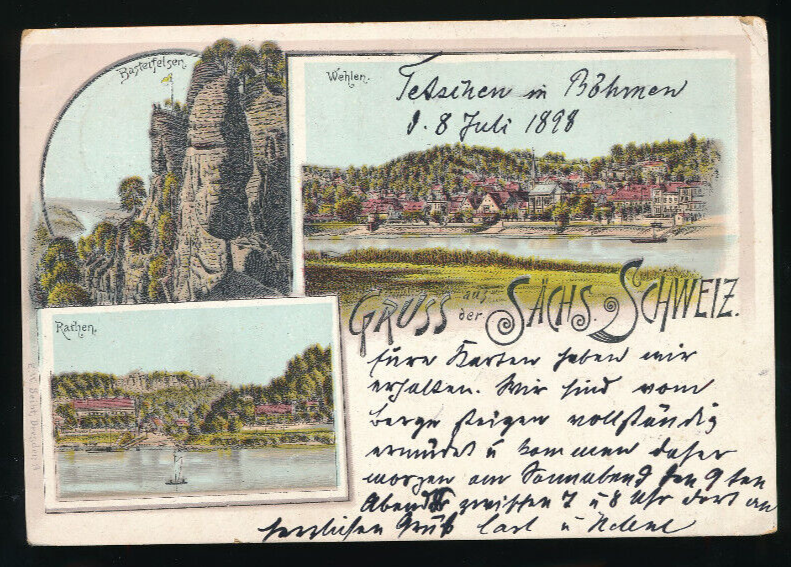 Basteifelsen.
Wehlen.
Tetschen in Böhmen
d. 8 Juli 1898
GRUSS aus der SÄCHS. SCHWEIZ.
Rathen.
Karten haben wir
erhalten. Wir sind vom
berge steigen vollständig
ermüdet u kommen daher
morgen am Sonnabend den 9ten
Abend zwischen 7 u 8 Uhr dort an
herzlichen Gruß Carl u Helene